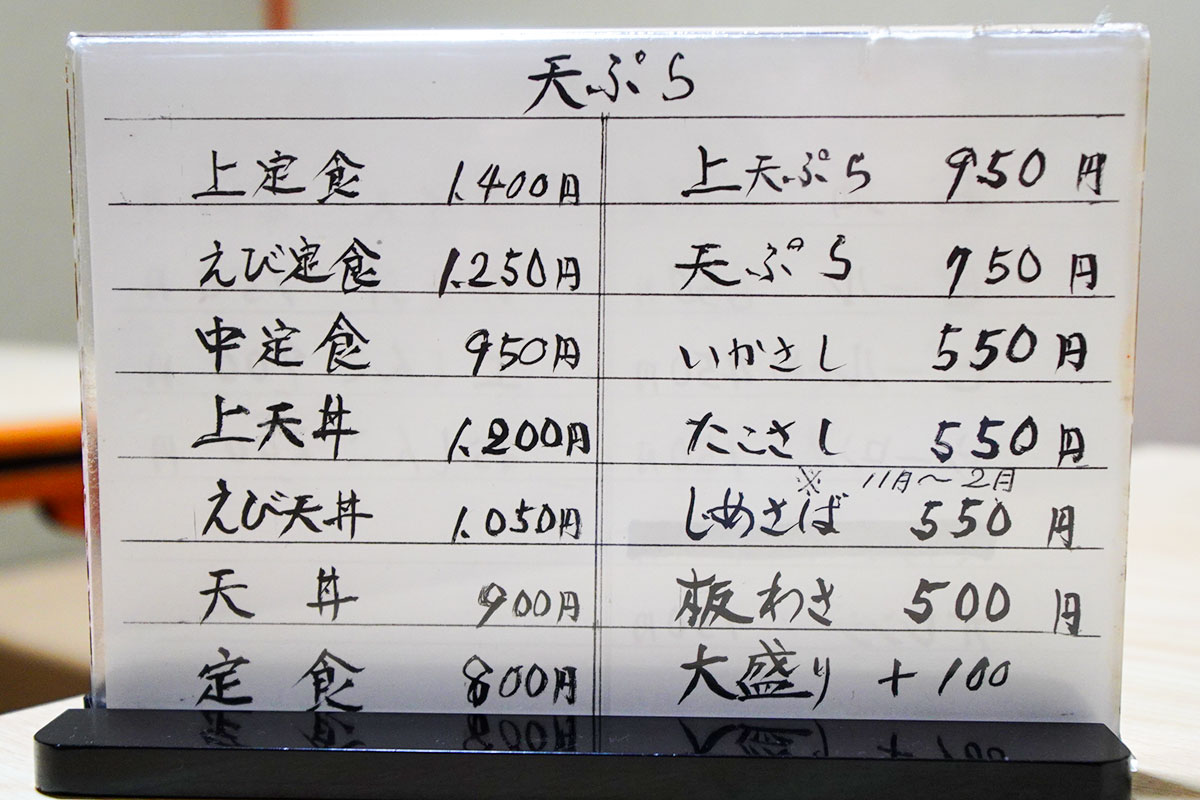 天ぷら
上定食 1.400円
えび定食 1.250円
中定食 950円
上天丼 1.200円
えび天丼 1.050円
天丼 900円
定食 800円
上天ぷら 950円
天ぷら 750円
いかさし 550円
たこさし 550円
※ 11月〜2月
しめさば 550円
板わさ 500円
大盛り +100